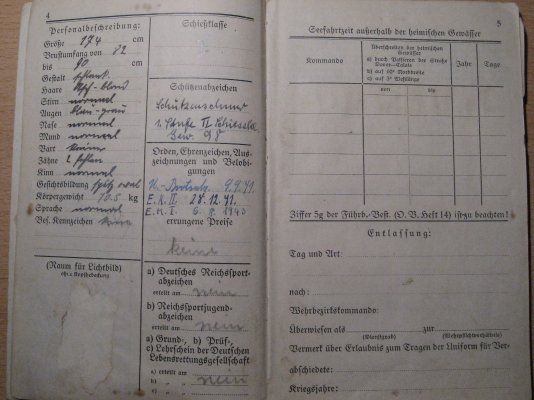 4
Personalbeschreibung:
Größe 174 cm
Brustumfang von 82
bis 90 cm
Gestalt schlank
Haare blond
Stirn normal
Augen blau-grau
Nase normal
Mund normal
Bart keiner
Zähne
Kinn normal
Gesichtsbildung spitz oval
Körpergewicht 70.5 kg
Sprache normal
Bes. Kennzeichen keine
(Raum für Lichtbild)
ohne Kopfbedeckung
Schießklasse
Schützenabzeichen
Schützenschnur
1. Stufe II Schießkl.
Gew. 98
Orden, Ehrenzeichen, Aus-
zeichnungen und Belobi-
gungen
9.9.41.
E.K.II 28.12.41.
E.K.I.
errungene Preise
keine
a) Deutsches Reichssport-
abzeichen
erteilt am nein
b) Reichssportjugend-
abzeichen
erteilt am nein
a) Grund-, b) Prüf-,
c) Lehrschein der Deutschen
Lebensrettungsgesellschaft
a) erteilt am
b) " " nein
c) " "
5
Seefahrtzeit außerhalb der heimischen Gewässer
Kommando
Überschreiten der heimischen
Gewässer
a) durch Passieren der Straße
Dover-Calais
b) auf 60° Nordbreite
c) auf 3° Westlänge
Jahr
Tage
von
bis
Ziffer 5g der Führb.-Best. (O. B. Heft 14) ist zu beachten!
Entlassung:
Tag und Art:
nach:
Wehrbezirkskommando:
Überwiesen als zur
(Dienstgrad) (Wehrpflichtverhältnis)
Vermerk über Erlaubnis zum Tragen der Uniform für Ver-
abschiedete:
Kriegsjahre: